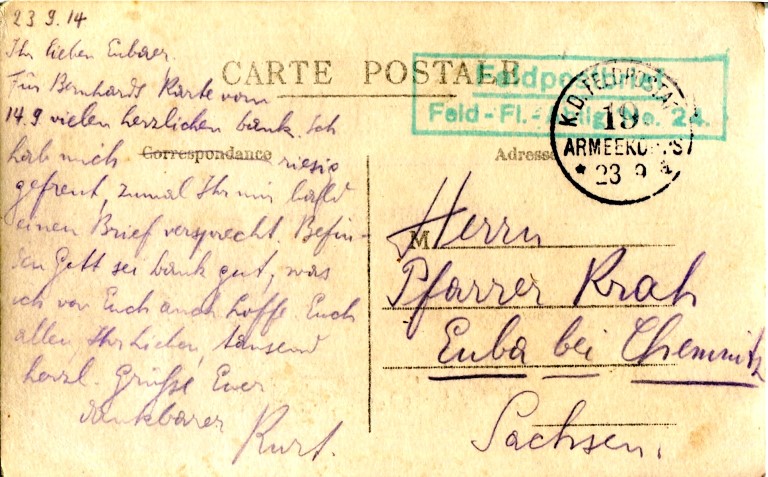 23.9.14
Ihr lieben Eubaer.
Für Bernhards Karte vom
14.9 vielen herzlichen Dank. Ich
hab mich riesig
gefreut, zumal Ihr mir bald
einen Brief versprecht. Befin-
den Gott sei Dank gut, was
ich von Euch auch hoffe. Euch
allen, Ihr Lieben, tausend
herzl. Grüße Euer
dankbarer
Kurt.
CARTE POSTALE
Correspondance
Adresse
Feldpostbrief
Feld-Fl.- No. 24.
K.D.FELDPOSTA
19
ARMEEKORPS
* 23 9
M
Herrn
Pfarrer Krah
Euba bei Chemnitz
Sachsen.